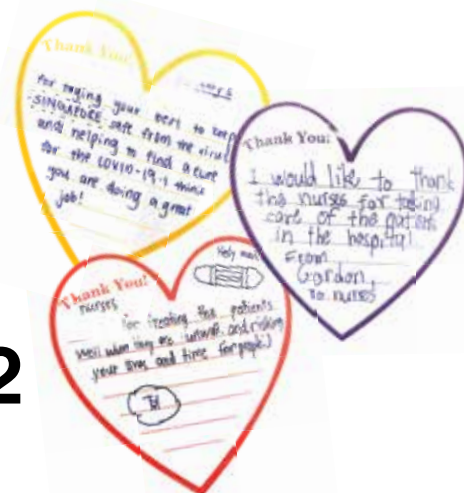 Thank You!
for taging your best to keep
SINGAPORE safe from the virus
and helping to find a cure
for the COVID-19. I think
you are doing a great
job!
Thank You!
I would like to thank
the nurses for taking
care of the patients
in the hospital
From
Gordon,
to nurses
Thank You!
nurses
for treating the patients
well when they are unwell and risking
your lives and time for people:)
2